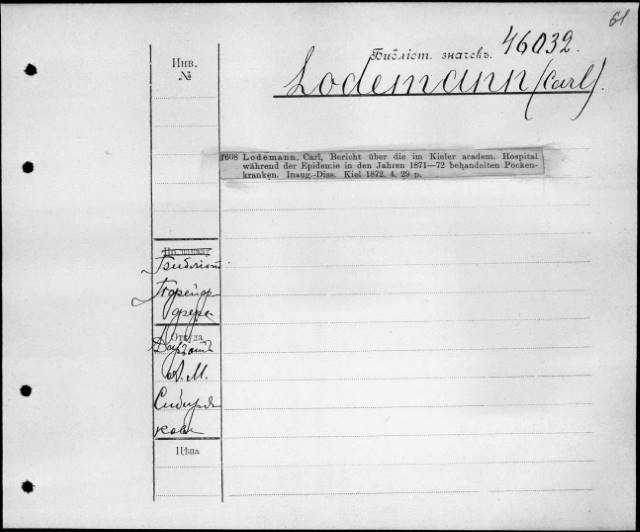 61
Инв.
№
Библіот. значекъ. 46032.
Lodemann (Carl).
1608 Lodemann, Carl, Bericht über die im Kieler academ. Hospital
während der Epidemie in den Jahren 1871—72 behandelten Pocken-
kranken. Inaug.-Diss. Kiel 1872. 4. 29 p.
Библіот.
Пфейф
фера
Откуда
Даръ отъ
А. М.
Сибиря
кова
Цѣна